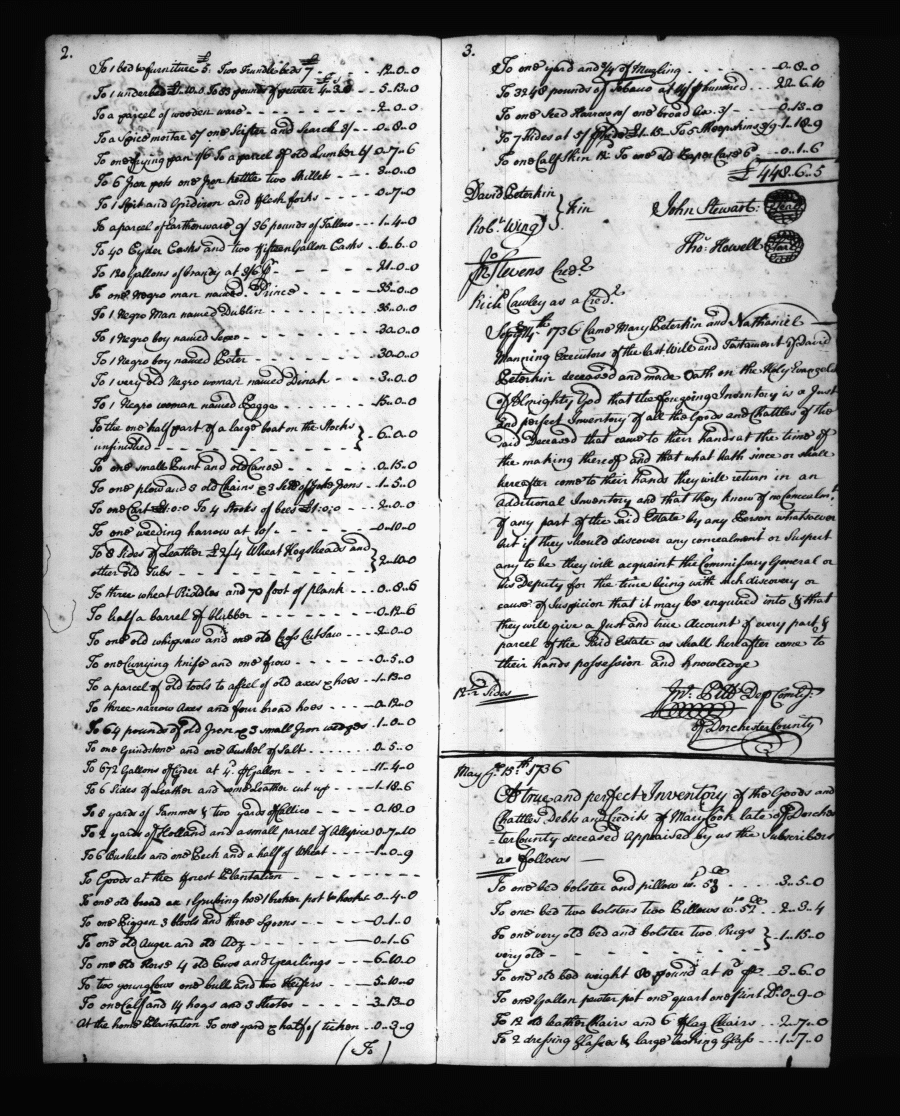 2.
To 1 bed & furniture £5. Two Trundle beds £7 - 12..0..0
To 1 underbed £1.10.0 To 83 pounds of pewter £4.3.0 - 5..13..0
To a parcel of wooden ware - 2..0..0
To a Spice mortar 5/ one Sifter and Search 3/ - 0..8..0
To one frying pan 3/6 To a parcel of old Lumber 4/ 0..7..6
To 6 Iron pots one Iron kettle two Skillets - 3..0..0
To 1 Spit and Gridiron and flesh forks - 0..7..0
To a parcel of Earthenware & 36 pounds of Tallow - 1..4..0
To 40 Cyder Casks and two fifteen Gallon Casks - 6..6..0
To 120 Gallons of brandy at 3/6 - 21..0..0
To one Negro man named Prince - 35..0..0
To 1 Negro Man named Dublin - 35..0..0
To 1 Negro boy named - 30..0..0
To 1 Negro boy named Peter - 30..0..0
To 1 very old Negro woman named Dinah - 3..0..0
To 1 Negro woman named Pegge - 15..0..0
To the one half part of a large boat on the Stocks
unfinished - 6..0..0
To one small Punt and old Canoe - 0..15..0
To one plow and 3 old Chains & 3 Sett of Yoke Irons - 1..5..0
To one Cart £1:0:0 To 4 Stocks of bees £1:0:0 - 2..0..0
To one weeding harrow at 10/ - 0..10..0
To 8 Sides of Leather £2/4 Wheat Hogsheads and
other old Tubs - 2..10..0
To three wheat Riddles and 70 foot of plank - 0..8..6
To half a barrel of blubber - 0..12..6
To one old whipsaw and one old Cross Cut Saw - 2..0..0
To one Currying knife and one frow - 0..5..0
To a parcel of old tools to a peel of old axes & hoes - 1..13..0
To three narrow Axes and four broad hoes - 0..12..0
To 64 pounds of old Iron & 3 small Iron wedges - 1..0..0
To one Grindstone and one Bushel of Salt - 0..5..0
To 672 Gallons of Cyder at 4d. P Gallon - 11..4..0
To 6 Sides of Leather and some Leather cut up - 1..18..6
To 8 yards of Tammee & two yards of Callico - 0..18..0
To 2 yards of Holland and a small parcel of Allspice 0..7..10
To 6 Bushels and one Peck and a half of Wheat - 1..0..9
To Goods at the forest Plantation -
To one old broad ax 1 Grubing hoe 1 broken pot & hooks - 0..4..0
To one Piggen 3 bowls and three Spoons - 0..1..0
To one old Auger and old Adz - 0..1..6
To one old Horse 4 old Cows and Yearlings - 6..10..0
To two young Cows one bull and two Heifers - 5..10..0
To one Calf and 14 hogs and 3 Shotes - 3..13..0
At the home Plantation To one yard & half of ticken - 0..3..9
(To)
3.
To one yard and 3/4 of Muzling - 0..8..0
To 3348 pounds of Tobaco at P hundred - 22..6..10
To one Seed Harrow 10/ one broad Ax 3/ - 0..13..0
To 7 Hides at 5/ P hyde £1.15 To 5 Sheepskins 3/9 - 1..18..9
To one Calf Skin 12d To one old Tapes Case 6d - 0..1..6
£448..6..5
David Peterkin
Robt. Wing } Kin
John Stewart: Seal
Tho: Howell Seal
Jo
Stevens Credr
Richd. Cawley as a Credr.
Septr. 14th 1736 Came Mary Peterkin and Nathaniel
Manning Executors of the last Will and Testament of David
Peterkin deceased and made Oath on the Holy Evangels
of Almighty God that the foregoing Inventory is a Just
and perfect Inventory of all the Goods and Chattles of the
said Deceased that came to their hands at the time of
the making thereof and that what hath since or shall
hereafter come to their hands they will return in an
Additional Inventory and that they know of no Concealmt.
of any part of the said Estate by any Person whatsoever
but if they should discover any concealment or Suspect
any to be they will acquaint the Commissary General or
his Deputy for the time being with such discovery or
cause of Suspicion that it may be enquired into & that
they will give a Just and true Account of every part &
parcel of the said Estate as shall hereafter come to
their hands possession and knowledge
12 1/2 Sides
Jno. Pitt Dep Comisy.
of Dorchester County
May ye. 15th. 1736
A true and perfect Inventory of the Goods and
Chattles Debts and Credits of Mary Cook late of Dorches
=ter County deceased Appraised by us the Subscribers
as follows
To one bed bolster and pillow wt. 53 - 3..5..0
To one bed two bolsters two Pillows wt. 52 - 2..3..4
To one very old bed and bolster two Rugs
very old - 1..15..0
To one old bed weight 80 pound at 10d P - 3..6..0
To one Gallon pewter pot one quart one pint Do. 0..9..0
To 12 old leather Chairs and 6 flag Chairs - 2..7..0
To 2 dressing Glasses & large looking Glass - 1..7..0